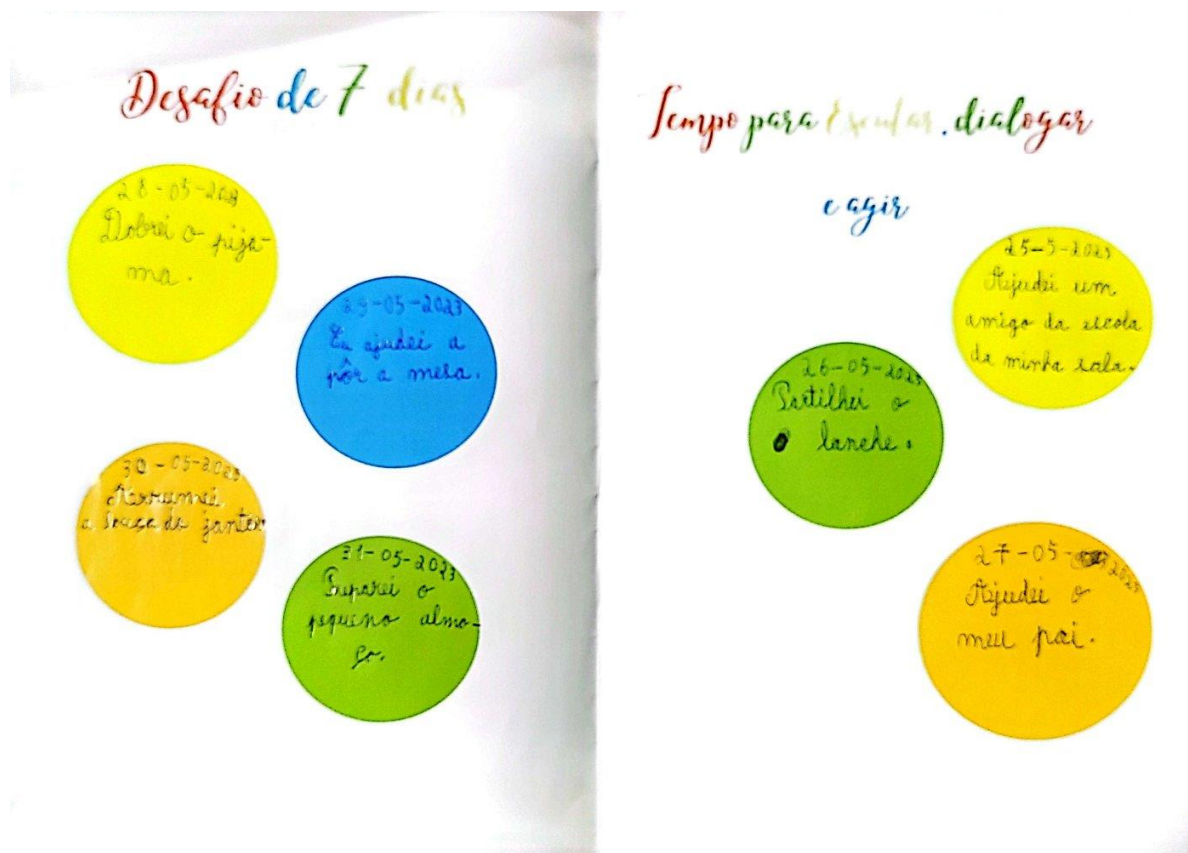 Desafio de 7 dias
28-05-2023
Dobrei o pija-
ma.
29-05-2023
Eu ajudei a
pôr a mesa.
30-05-2023
Arrumei
a louça do jantar
31-05-2023
Preparei o
pequeno almo-
ço.
Tempo para Escutar, dialogar
e agir
25-5-2023
Ajudei um
amigo da escola
da minha sala.
26-05-2023
Partilhei o
lanche.
27-05-2023
Ajudei o
meu pai.